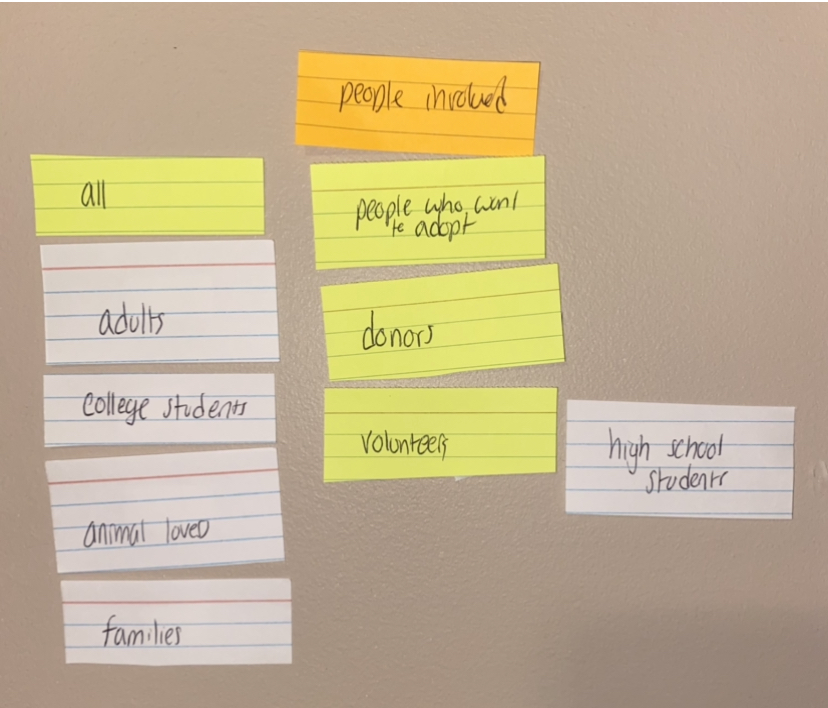 people involved
all
adults
college students
animal loved
families
people who want
to adopt
donors
volunteers
high school
students